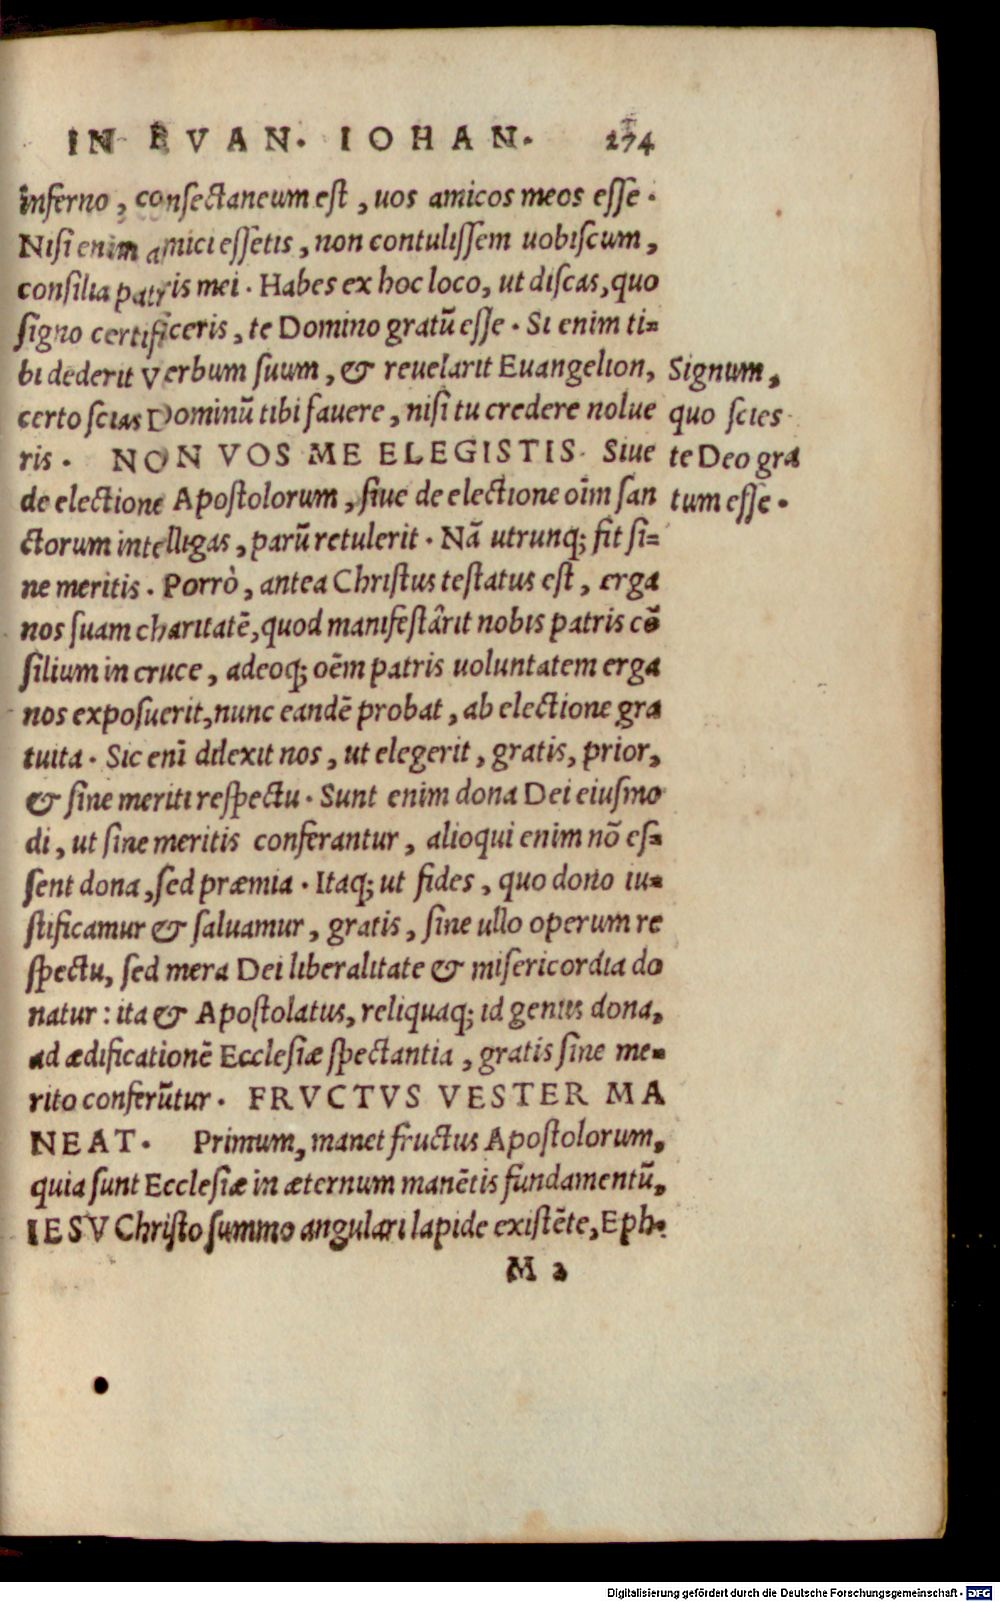 IN EVAN. IOHAN. 274
inferno, consectaneum est, uos amicos meos esse.
Nisi enim amici essetis, non contulissem uobiscum,
consilia patris mei. Habes ex hoc loco, ut discas, quo
signo certificeris, te Domino gratū esse. Si enim ti=
bi dederit Verbum suum, & reuelarit Euangelion,
certo scias Dominū tibi fauere, nisi tu credere nolue
ris. NON VOS ME ELEGISTIS. Siue
de electione Apostolorum, siue de electione oīm san
ctorum intelligas, parū retulerit. Nā utrunq; fit si=
ne meritis. Porrò, antea Christus testatus est, erga
nos suam charitatē, quod manifestârit nobis patris cō
silium in cruce, adeoq; oēm patris uoluntatem erga
nos exposuerit, nunc eandē probat, ab electione gra
tuita. Sic enī dilexit nos, ut elegerit, gratis, prior,
& sine meriti respectu. Sunt enim dona Dei eiusmo
di, ut sine meritis conferantur, alioqui enim nō es=
sent dona, sed præmia. Itaq; ut fides, quo dono iu=
stificamur & saluamur, gratis, sine ullo operum re
spectu, sed mera Dei liberalitate & misericordia do
natur: ita & Apostolatus, reliquaq; id genus dona,
ad ædificationē Ecclesiæ spectantia, gratis sine me=
rito conferūtur. FRVCTVS VESTER MA
NEAT. Primum, manet fructus Apostolorum,
quia sunt Ecclesiæ in æternum manētis fundamentū,
IESV Christo summo angulari lapide existēte, Eph.
M 2
Signum,
quo scies
te Deo gra
tum esse.
Digitalisierung gefördert durch die Deutsche Forschungsgemeinschaft - DFG